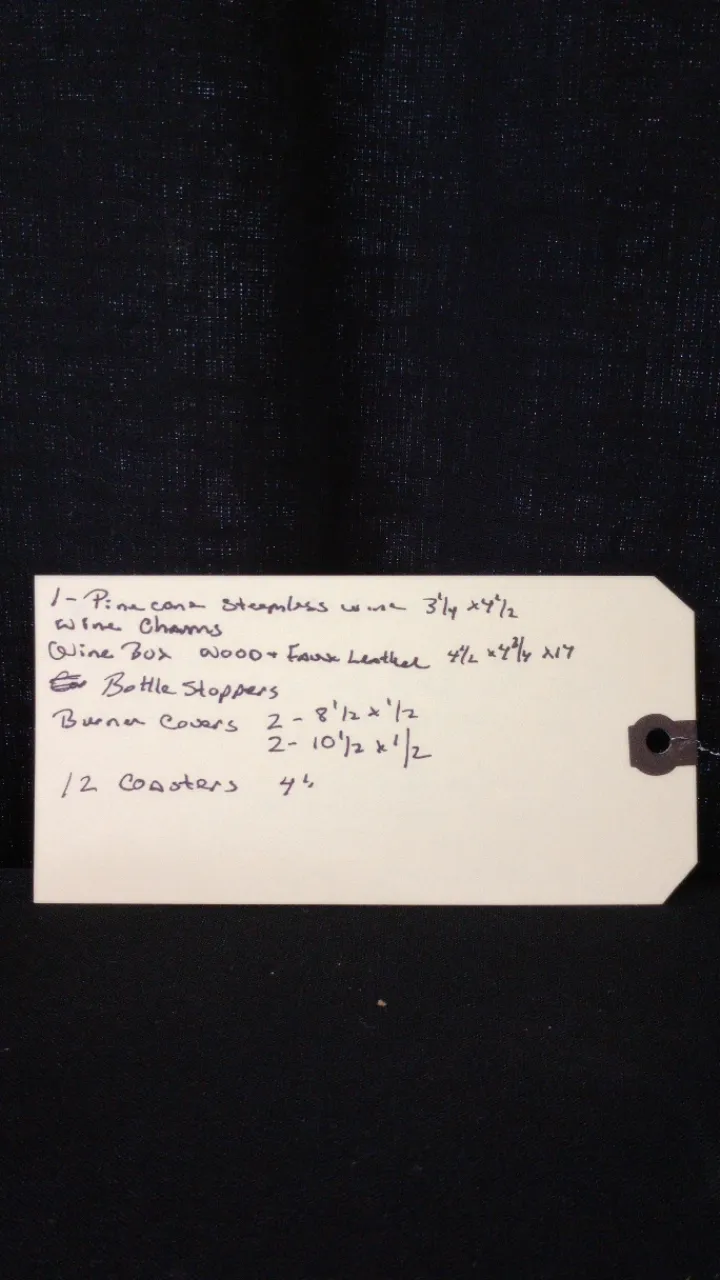 1- Pinecone Steamless wine 3 1/4 x 4 1/2
Wine Charms
Wine Box Wood + Faux Leather 4 1/2 x 4 3/4 x 14
Bottle Stoppers
Burner Covers 2 - 8 1/2 x 1/2
2 - 10 1/2 x 1/2
12 Coasters 4"